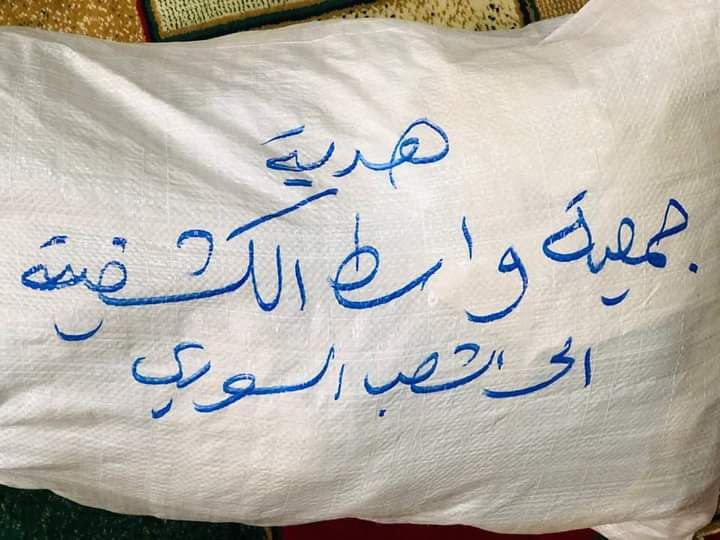 هدية
جمعية واسط الكشفية
الى الشعب السوري